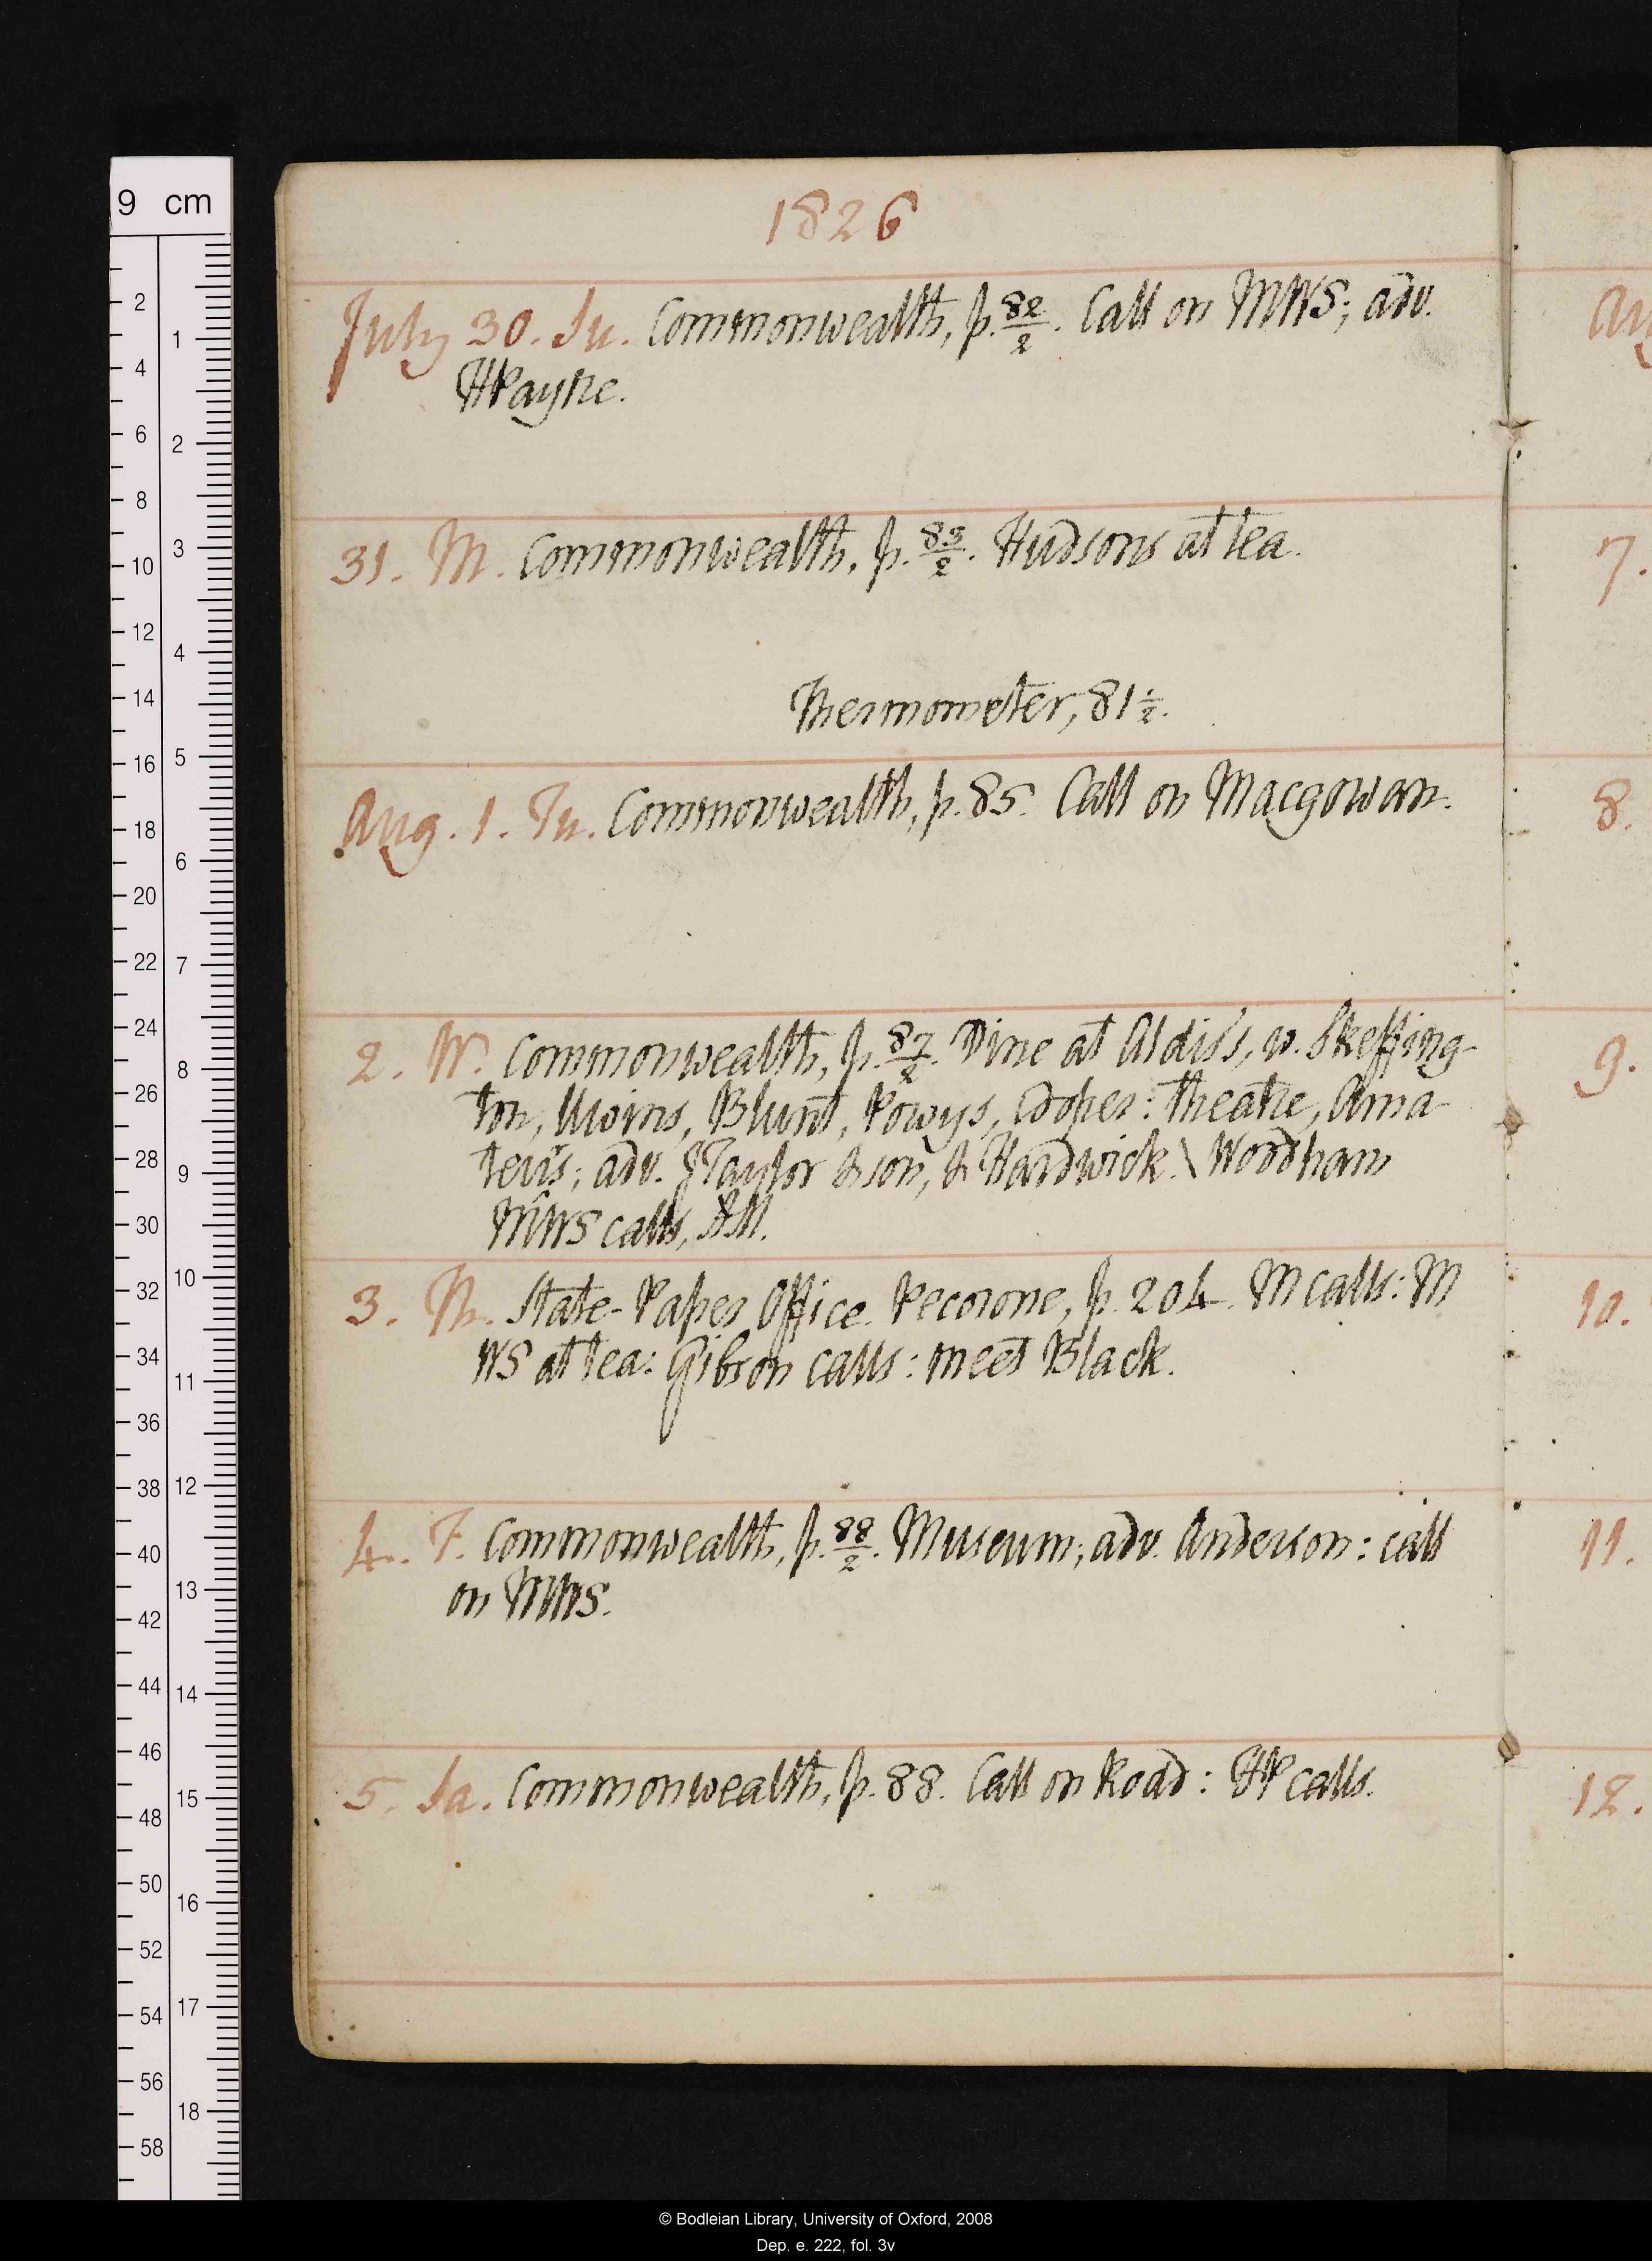 1826
July 30. Su. Commonwealth, p. 82/2. Call on MWS; adv.
HPayne.
31. M. Commonwealth, p. 83/2. Hudsons at tea.
Thermometer, 81 1/2.
Aug. 1. Tu. Commonwealth, p. 85. Call on Macgowan.
2. W. Commonwealth, p. 87/2. Dine at Aldis's, w. Skeffing-
ton, Moirns, Blunt, Powys, Cooper: theatre, Ama-
teurs; adv. JTaylor & son, & Hardwick. \ Woodham
MWS calls,
3. Th. State-Paper Office. Pecorone, p. 204. M calls: M
WS at tea: Gibson calls: meet Black.
4. F. Commonwealth, p. 88/2. Museum; adv. Anderson: call
on MWS.
5. Sa. Commonwealth, p. 88. Call on Road: HP calls.
Au
7.
8.
9.
10.
11.
12.
9 cm
2
4
6
8
10
12
14
16
18
20
22
24
26
28
30
32
34
36
38
40
42
44
46
48
50
52
54
56
58
1
2
3
4
5
6
7
8
9
10
11
12
13
14
15
16
17
18
© Bodleian Library, University of Oxford, 2008
Dep. e. 222, fol. 3v